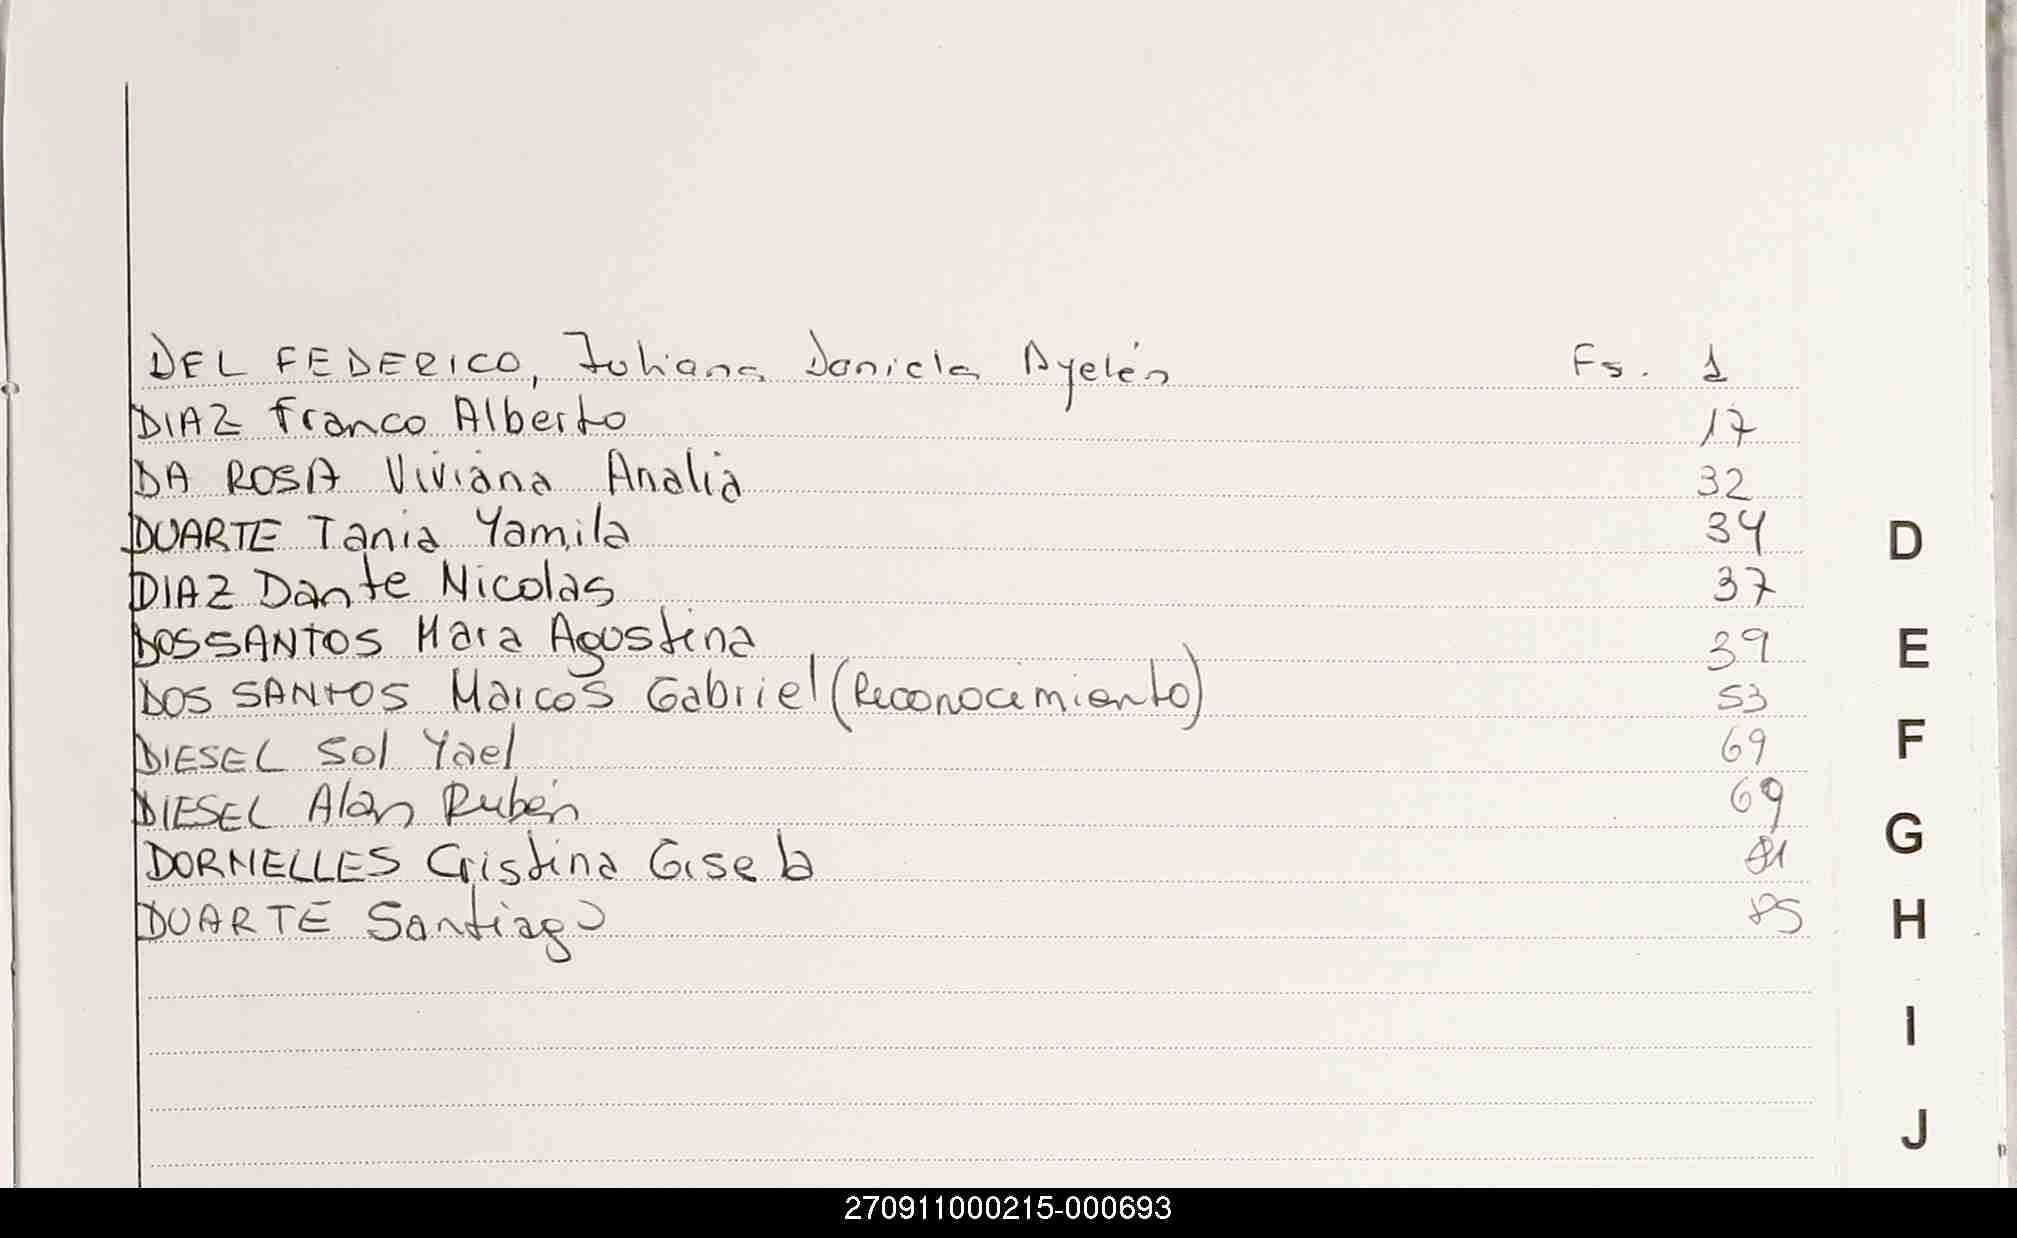 DEL FEDERICO, Juliana Daniela Ayelén Fs. 1
DIAZ Franco Alberto 17
DA ROSA Viviana Analia 32
DUARTE Tania Yamila 34
DIAZ Dante Nicolas 37
DOSSANTOS Mara Agostina 39
DOS SANTOS Marcos Gabriel (Reconocimiento) 53
DIESEL Sol Yael 69
DIESEL Alan Rubén 69
DORNELLES Cristina Gisela 81
DUARTE Santiago 85
D
E
F
G
H
I
J
270911000215-000693